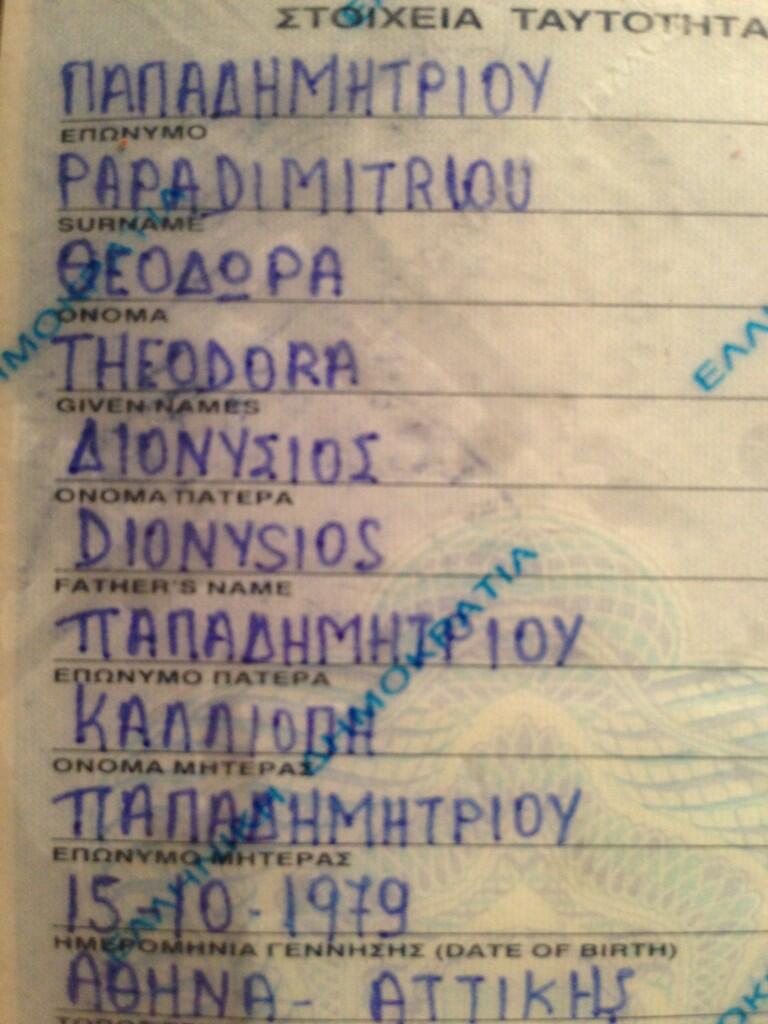 ΣΤΟΙΧΕΙΑ ΤΑΥΤΟΤΗΤΑ
ΠΑΠΑΔΗΜΗΤΡΙΟΥ
ΕΠΩΝΥΜΟ
PAPADIMITRIOU
SURNAME
ΘΕΟΔΩΡΑ
ΟΝΟΜΑ
THEODORA
GIVEN NAMES
ΔΙΟΝΥΣΙΟΣ
ΟΝΟΜΑ ΠΑΤΕΡΑ
DIONYSIOS
FATHER'S NAME
ΠΑΠΑΔΗΜΗΤΡΙΟΥ
ΕΠΩΝΥΜΟ ΠΑΤΕΡΑ
ΚΑΛΛΙΟΠΗ
ΟΝΟΜΑ ΜΗΤΕΡΑΣ
ΠΑΠΑΔΗΜΗΤΡΙΟΥ
ΕΠΩΝΥΜΟ ΜΗΤΕΡΑΣ
15-10-1979
ΗΜΕΡΟΜΗΝΙΑ ΓΕΝΝΗΣΗΣ (DATE OF BIRTH)
ΑΘΗΝΑ - ΑΤΤΙΚΗΣ
ΕΛΛΗΝΙΚΗ ΔΗΜΟΚΡΑΤΙΑ